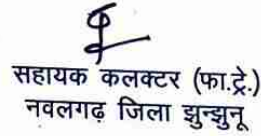 सहायक कलक्टर (फा.ट्रे.)
नवलगढ़ जिला झुन्झुनू